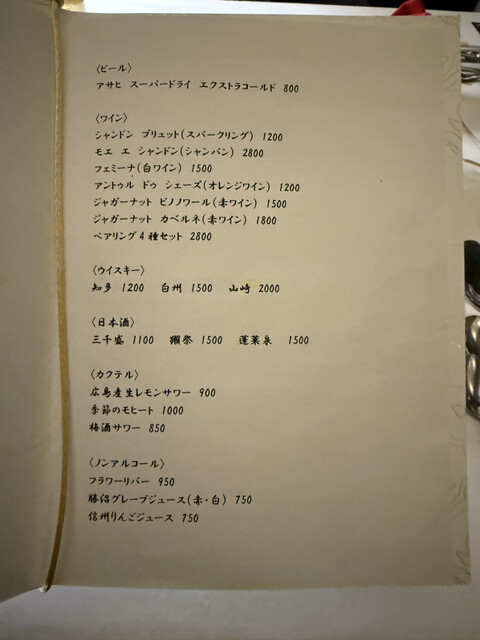 〈ビール〉
アサヒ スーパードライ エクストラコールド 800
〈ワイン〉
シャンドン ブリュット(スパークリング) 1200
モエ エ シャンドン(シャンパン) 2800
フェミーナ(白ワイン) 1500
アントゥル ドゥ シェーズ(オレンジワイン) 1200
ジャガーナット ピノノワール(赤ワイン) 1500
ジャガーナット カベルネ(赤ワイン) 1800
ペアリング4種セット 2800
〈ウイスキー〉
知多 1200 白州 1500 山崎 2000
〈日本酒〉
三千盛 1100 獺祭 1500 蓬莱泉 1500
〈カクテル〉
広島産生レモンサワー 900
季節のモヒート 1000
梅酒サワー 850
〈ノンアルコール〉
フラワーリバー 950
勝沼グレープジュース(赤・白) 750
信州りんごジュース 750